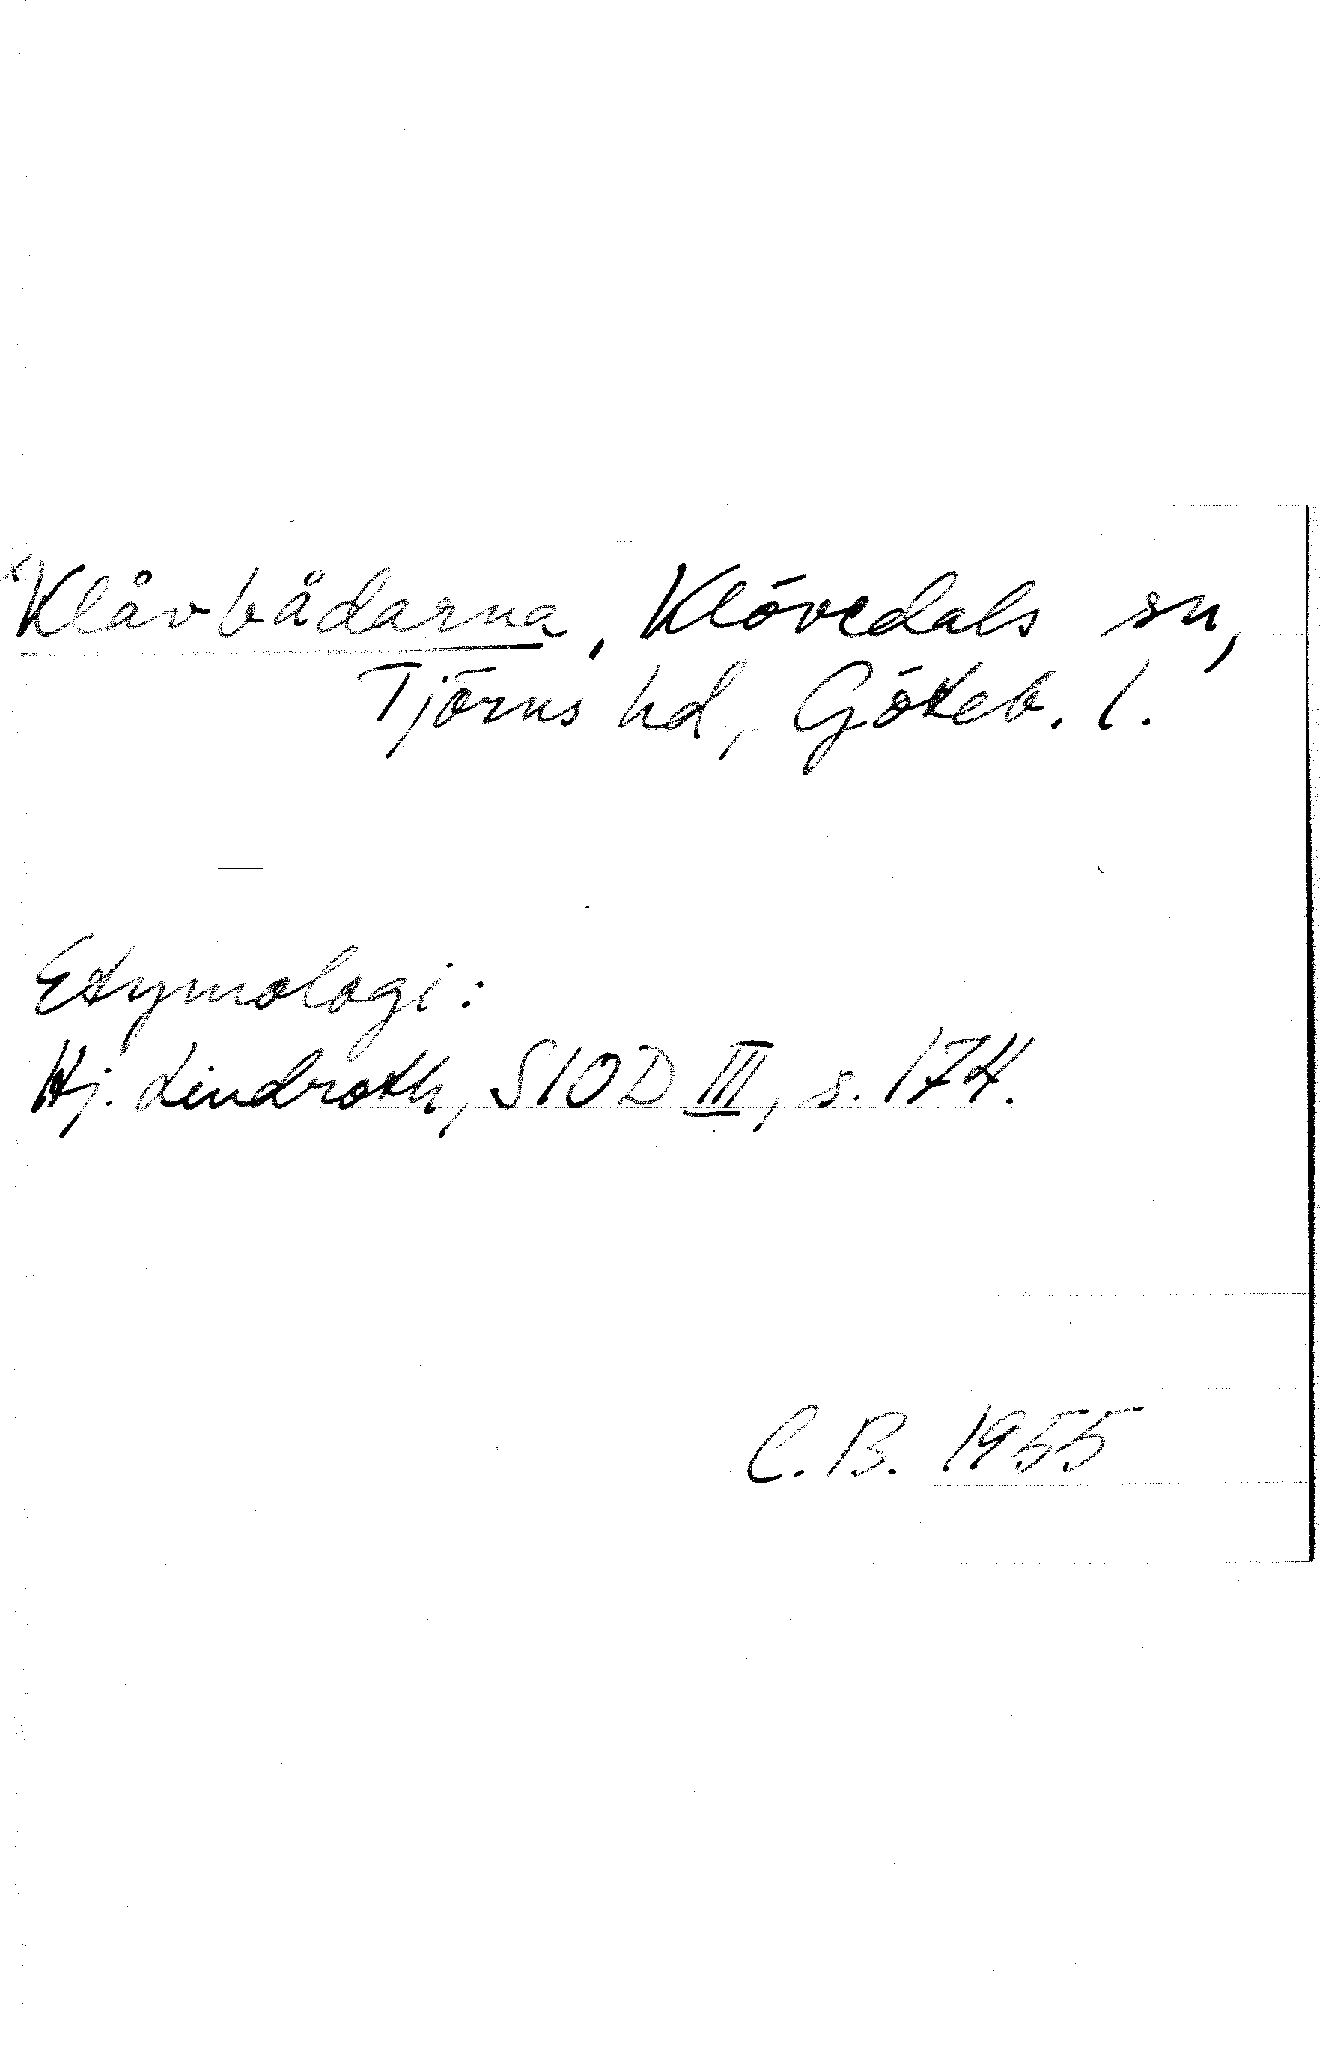 Klåvbådarna, Klövedals sn,
Tjörns hd, Göteb. l.
Etymologi:
Hj. Lindroth, SIOD III, s. 174.
C. B. 1955